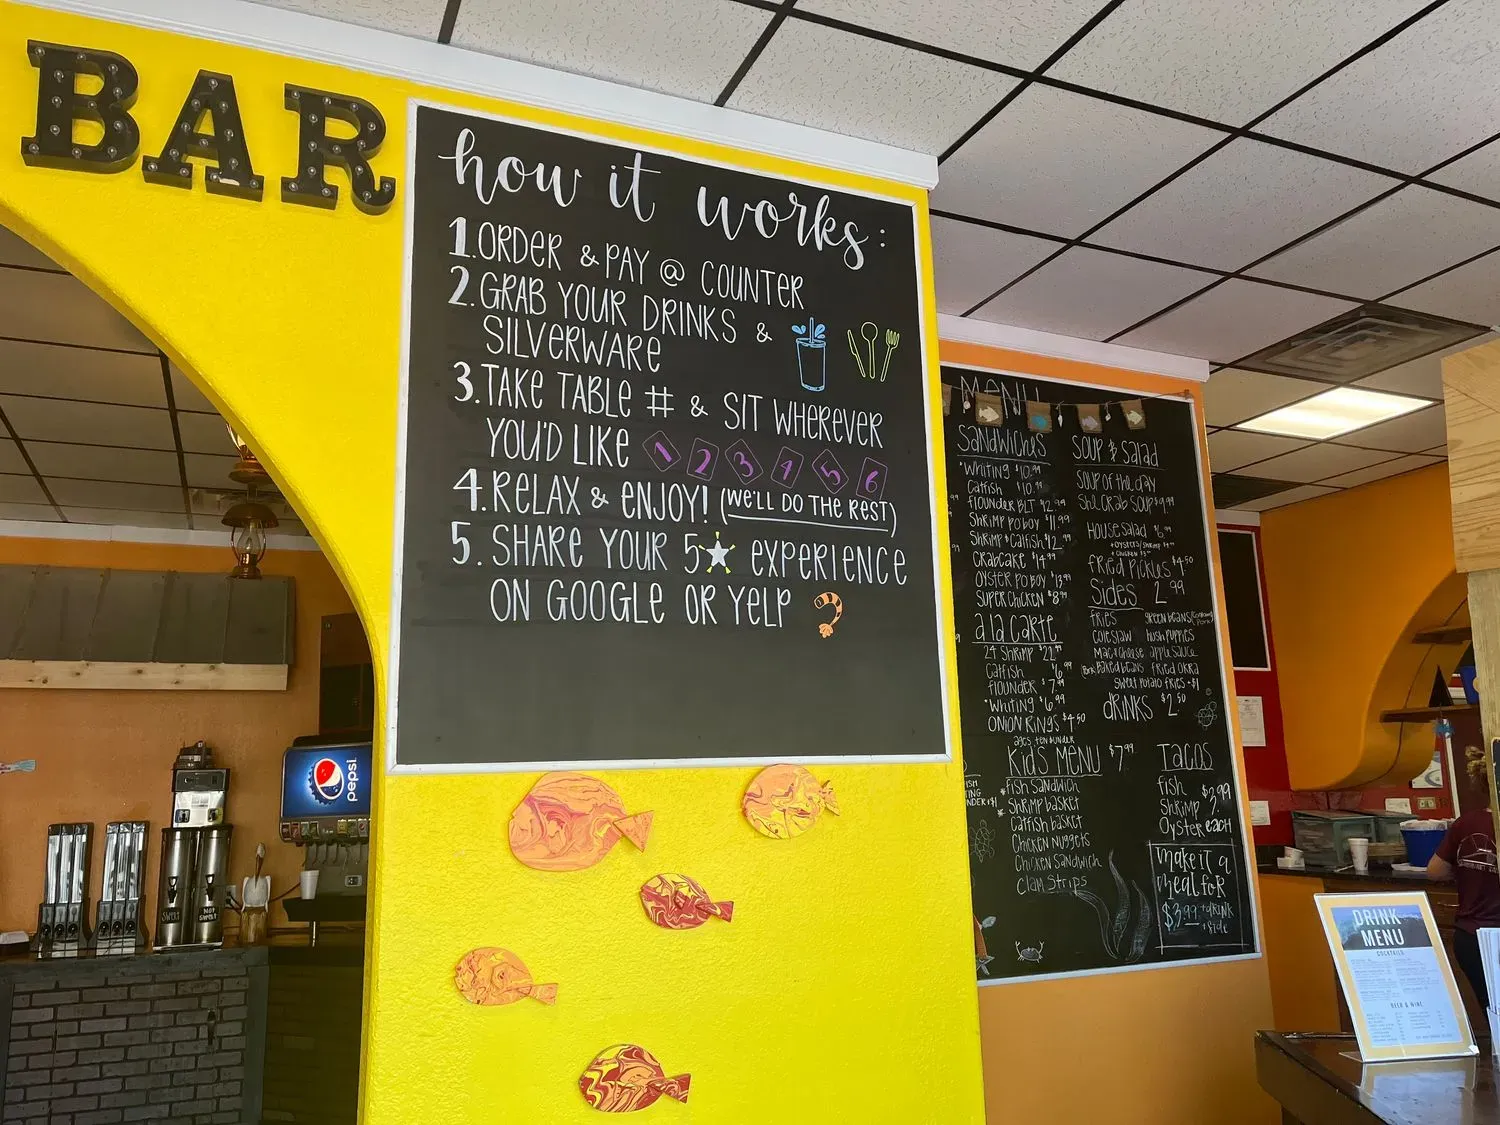 BAR
how it works:
1. ORDER & PAY @ COUNTER
2. GRAB YOUR DRINKS &
SILVERWARE
3. TAKE TABLE # & SIT WHEREVER
YOU'D LIKE 1 2 3 4 5 6
4. RELAX & ENJOY! (WE'LL DO THE REST)
5. SHARE YOUR 5 EXPERIENCE
ON GOOGLE OR YELP
pepsi
SWEET
NOT SWEET
MENU
SANDWICHES
*WHITING $10.99
CATFISH $10.99
FLOUNDER BLT $12.99
SHRIMP PO BOY $11.99
SHRIMP & CATFISH $12.99
CRABCAKE $14.99
OYSTER PO BOY $13.99
SUPER CHICKEN $8.99
a la CARTE
24 SHRIMP $22.99
CATFISH $6.99
FLOUNDER $7.99
*WHITING $6.99
ONION RINGS $4.50
AGES TEN & UNDER
KIDS MENU $7.99
*FISH SANDWICH
*SHRIMP BASKET
CATFISH BASKET
CHICKEN NUGGETS
CHICKEN SANDWICH
CLAM STRIPS
SOUP & SALAD
SOUP OF THE DAY
SHE CRAB SOUP $9.99
HOUSE SALAD $6.99
FRIED PICKLES $4.50
SIDES 2.99
FRIES GREEN BEANS
COLESLAW HUSHPUPPIES
MAC & CHEESE APPLE SAUCE
BAKED BEANS FRIED OKRA
SWEET POTATO FRIES +$1
DRINKS $2.50
TACOS
FISH $3.99
SHRIMP
OYSTER EACH
MAKE IT A
MEAL FOR
$3.99 + DRINK
+ SIDE
DRINK
MENU
COCKTAILS
BEER & WINE